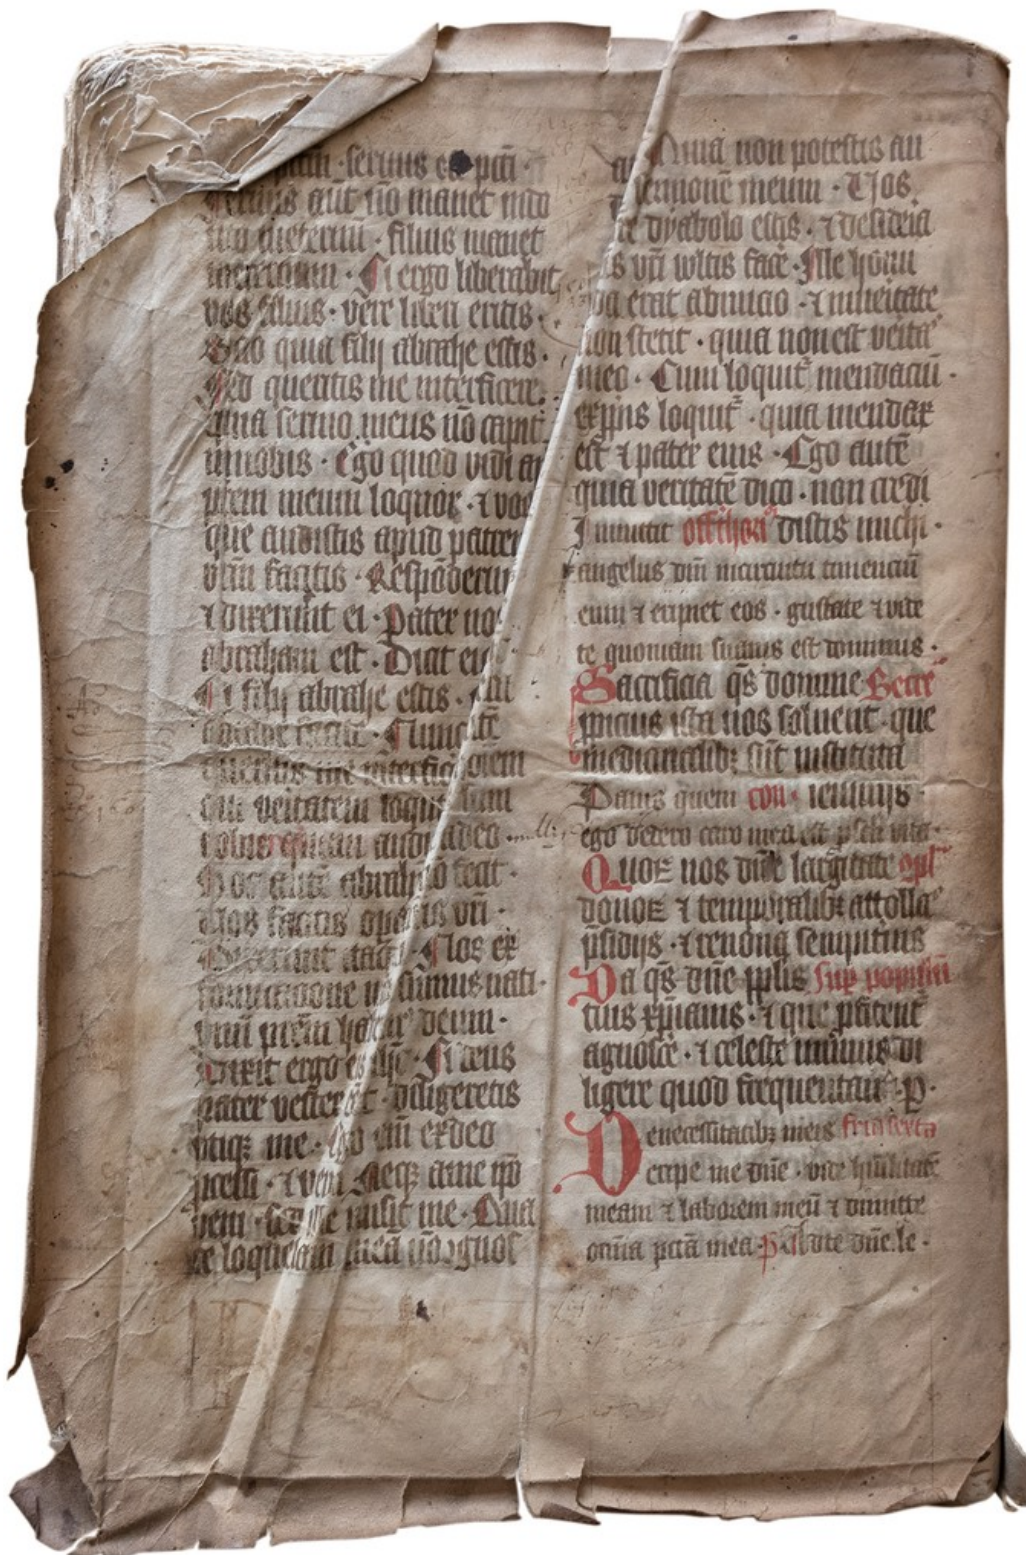 seruus est pcti ·
Seruus aut no manet indo
mo ineternu · filius manet
ineternum · Si ergo liberabit
vos filius · vere liberi eritis ·
Scio quia filij abrahe estis ·
Sed queritis me interficere ·
quia sermo meus no capit
inuobis · Ego quod vidi ap
prem meum loquor · ⁊ vos
que audistis apud patrem
vrm facitis · Respōderunt
⁊ dixerunt ei · Pater nos
abraham est · Dicit eis
Si filij abrahe estis ·
abrahe facite · Nunc
queritis me interfic
qui veritatem
vobis quam audi adeo ·
Hoc autē abraham fecit ·
Uos facitis opera vri ·
Dixerunt itaqȝ · Nos ex
fornicatione n sumus nati ·
vnū prēm habem deum ·
Dixit ergo eis · Si deus
pater vester · diligeretis
vtiqȝ me · Ego em exdeo
pcessi · ⁊ veni Neqȝ ame ipo
veni · sed ille misit me · Qua
re loquelam meā nō ɔgnos
Quia non potestis au
sermonē meum · Uos
dyabolo estis · ⁊ desideria
vri vultis face · Ille homi
erat abinicio · ⁊ inueritate
non stetit · quia non est verita
ineo · Cum loquit mendaciū ·
expriis loquit · quia mendax
est ⁊ pater eius · Ego autē
quia veritatē dico · non credi
Inmittit offerthor distis michi ·
angelus dni incircuitu timenciū
eum ⁊ eripiet eos · gustate ⁊ vide
te quoniam suauis est dominus ·
Sacrificia qs domine Secre
ppicius ista nos saluent · que
medicinalibȝ sūt instituta
Panis quem con · ieiunijs
ego dedero caro mea est p sclī vita ·
Quos nos dne largitate opl
donos ⁊ temporalibȝ attolla
psidijs · ⁊ renoua sempitnis
Da qs dne pplis Sup populū
tuis xpianis · ⁊ que pfitent
agnosce · ⁊ celeste munus di
ligere quod frequentant · P ·
Denecessitatibȝ meis feria sexta
eripe me dne · vide hūilitatē
meam ⁊ laborem meū ⁊ dimitte
omīa pctā mea · P Adte dne le ·